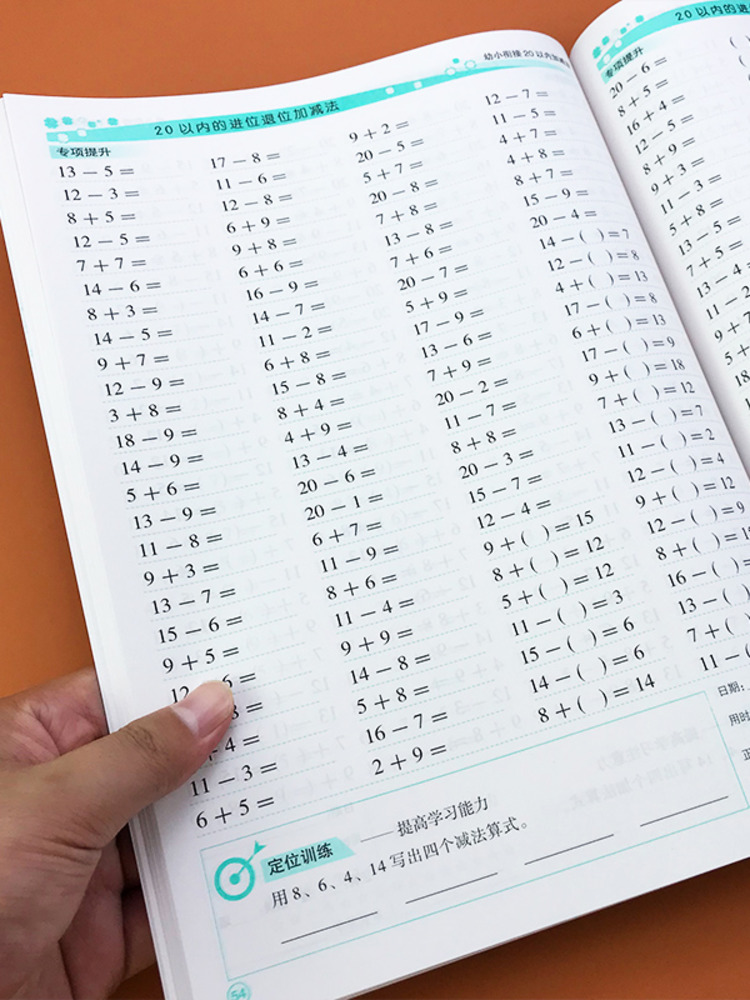 幼小衔接 20 以内加减
20 以内的进位退位加减法
专项提升
13 − 5 =
12 − 3 =
8 + 5 =
12 − 5 =
7 + 7 =
14 − 6 =
8 + 3 =
14 − 5 =
9 + 7 =
12 − 9 =
3 + 8 =
18 − 9 =
14 − 9 =
5 + 6 =
13 − 9 =
11 − 8 =
9 + 3 =
13 − 7 =
15 − 6 =
9 + 5 =
12 6 =
8 =
4 =
11 − 3 =
6 + 5 =
17 − 8 =
11 − 6 =
12 − 8 =
6 + 9 =
9 + 8 =
6 + 6 =
16 − 9 =
14 − 7 =
11 − 2 =
6 + 8 =
15 − 8 =
8 + 4 =
4 + 9 =
13 − 4 =
20 − 6 =
20 − 1 =
6 + 7 =
11 − 9 =
8 + 6 =
11 − 4 =
9 + 9 =
14 − 8 =
5 + 8 =
16 − 7 =
2 + 9 =
9 + 2 =
20 − 5 =
5 + 7 =
20 − 8 =
7 + 8 =
13 − 8 =
7 + 6 =
20 − 7 =
5 + 9 =
17 − 9 =
13 − 6 =
7 + 9 =
20 − 2 =
11 − 7 =
8 + 8 =
20 − 3 =
15 − 7 =
12 − 4 =
9 + ( ) = 15
8 + ( ) = 12
5 + ( ) = 12
11 − ( ) = 3
15 − ( ) = 6
14 − ( ) = 6
8 + ( ) = 14
12 − 7 =
11 − 5 =
4 + 7 =
4 + 8 =
8 + 7 =
15 − 9 =
20 − 4 =
14 − ( ) = 7
12 − ( ) = 8
4 + ( ) = 13
17 − ( ) = 8
6 + ( ) = 13
17 − ( ) = 9
9 + ( ) = 18
7 + ( ) = 12
13 − ( ) = 7
11 − ( ) = 2
12 − ( ) = 4
9 + ( ) = 12
12 − ( ) = 9
8 + ( ) =
16 − ( ) =
13 − ( )
7 + ( )
11 − (
日期:
用时
正
定位训练 ——提高学习能力
用 8、6、4、14 写出四个减法算式。
54
20 以内的进
专项提升
20 − 6 =
8 + 5 =
16 + 4 =
12 − 5 =
8 + 9 =
9 + 3 =
11 − 3 =
5 + 8 =
13 − 5 =
7 + 5 =
13 − 4
11 − 2
9 + 7
5 +
18